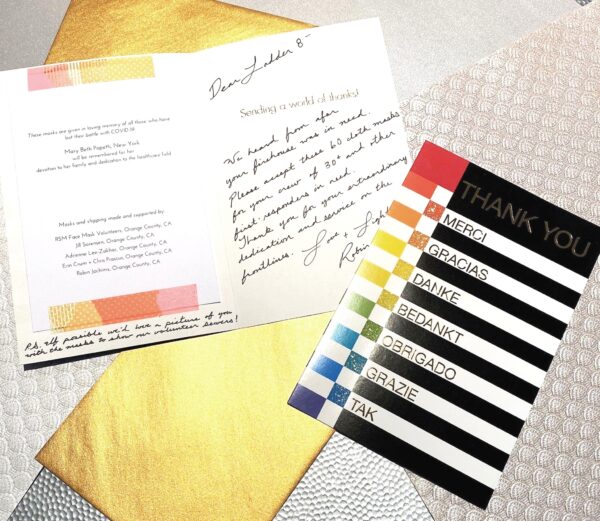 These masks are given in loving memory of all those who have
lost their battle with COVID-19.
Mary Beth Papetti, New York
will be remembered for her
devotion to her family and dedication to the healthcare field
Masks and shipping made and supported by:
RSM Face Mask Volunteers, Orange County, CA
Jill Sorensen, Orange County, CA
Adrienne Lev-Zakhar, Orange County, CA
Erin Crum + Chris Praxson, Orange County, CA
Robin Jackins, Orange County, CA
P.S. If possible we'd love a picture of you
with the masks to show our volunteer sewers!
Dear Ladder 8-
Sending a world of thanks!
We heard from afar
your firehouse was in need.
Please accept these 60 cloth masks
for your crew of 30+ and other
first-responders in need.
Thank you for your extraordinary
dedication and service on the
frontlines. Love + Light
Robin
THANK YOU
MERCI
GRACIAS
DANKE
BEDANKT
OBRIGADO
GRAZIE
TAK